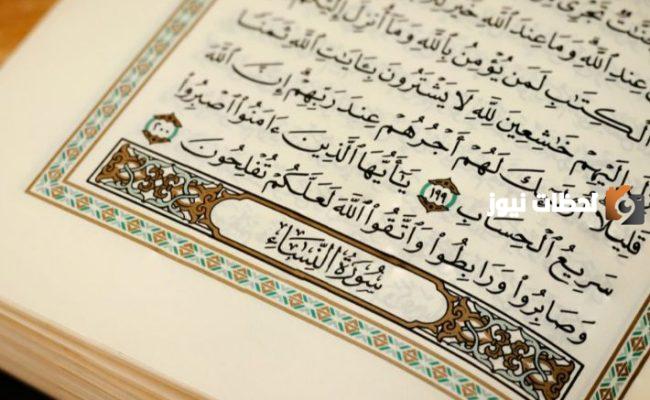 تَجْرِى
عِندِ ٱللَّهِ وَمَا عِندَ ٱللَّهِ خَيْرٌ
ٱلْكِتَٰبِ لَمَن يُؤْمِنُ بِٱللَّهِ وَمَآ أُنزِلَ إِلَيْكُمْ
إِلَيْهِمْ خَٰشِعِينَ لِلَّهِ لَا يَشْتَرُونَ بِـَٔايَٰتِ ٱللَّهِ ثَمَنًا
قَلِيلًا لَهُمْ أَجْرُهُمْ عِندَ رَبِّهِمْ إِنَّ ٱللَّهَ
سَرِيعُ ٱلْحِسَابِ ١٩٩ يَٰٓأَيُّهَا ٱلَّذِينَ ءَامَنُوا۟ ٱصْبِرُوا۟
وَصَابِرُوا۟ وَرَابِطُوا۟ وَٱتَّقُوا۟ ٱللَّهَ لَعَلَّكُمْ تُفْلِحُونَ ٢٠٠
سُورَةُ ٱلنِّسَاءِ
لحظات نيوز